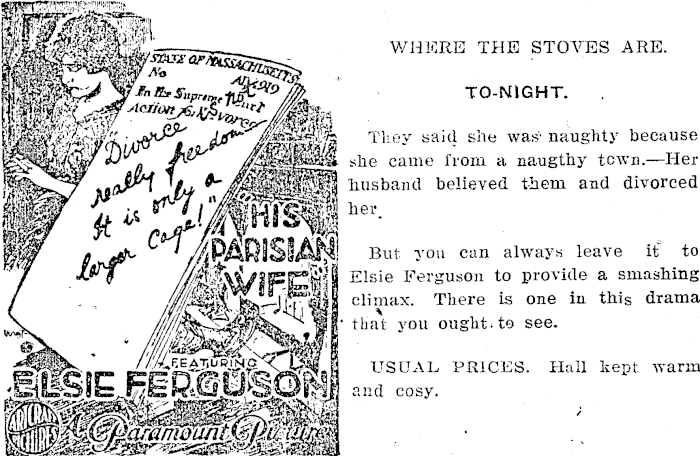 STATE OF MASSACHUSETTS
No
1919
In the Supreme Court
Action for Divorce
"Divorce
really freedom
It is only a
larger cage!"
"HIS
PARISIAN
WIFE"
FEATURING
ELSIE FERGUSON
ARTCRAFT
PICTURES
A Paramount Picture
WHERE THE STOVES ARE.
TO-NIGHT.
They said she was naughty because
she came from a naugthy town.—Her
husband believed them and divorced
her.
But you can always leave it to
Elsie Ferguson to provide a smashing
climax. There is one in this drama
that you ought to see.
USUAL PRICES. Hall kept warm
and cosy.